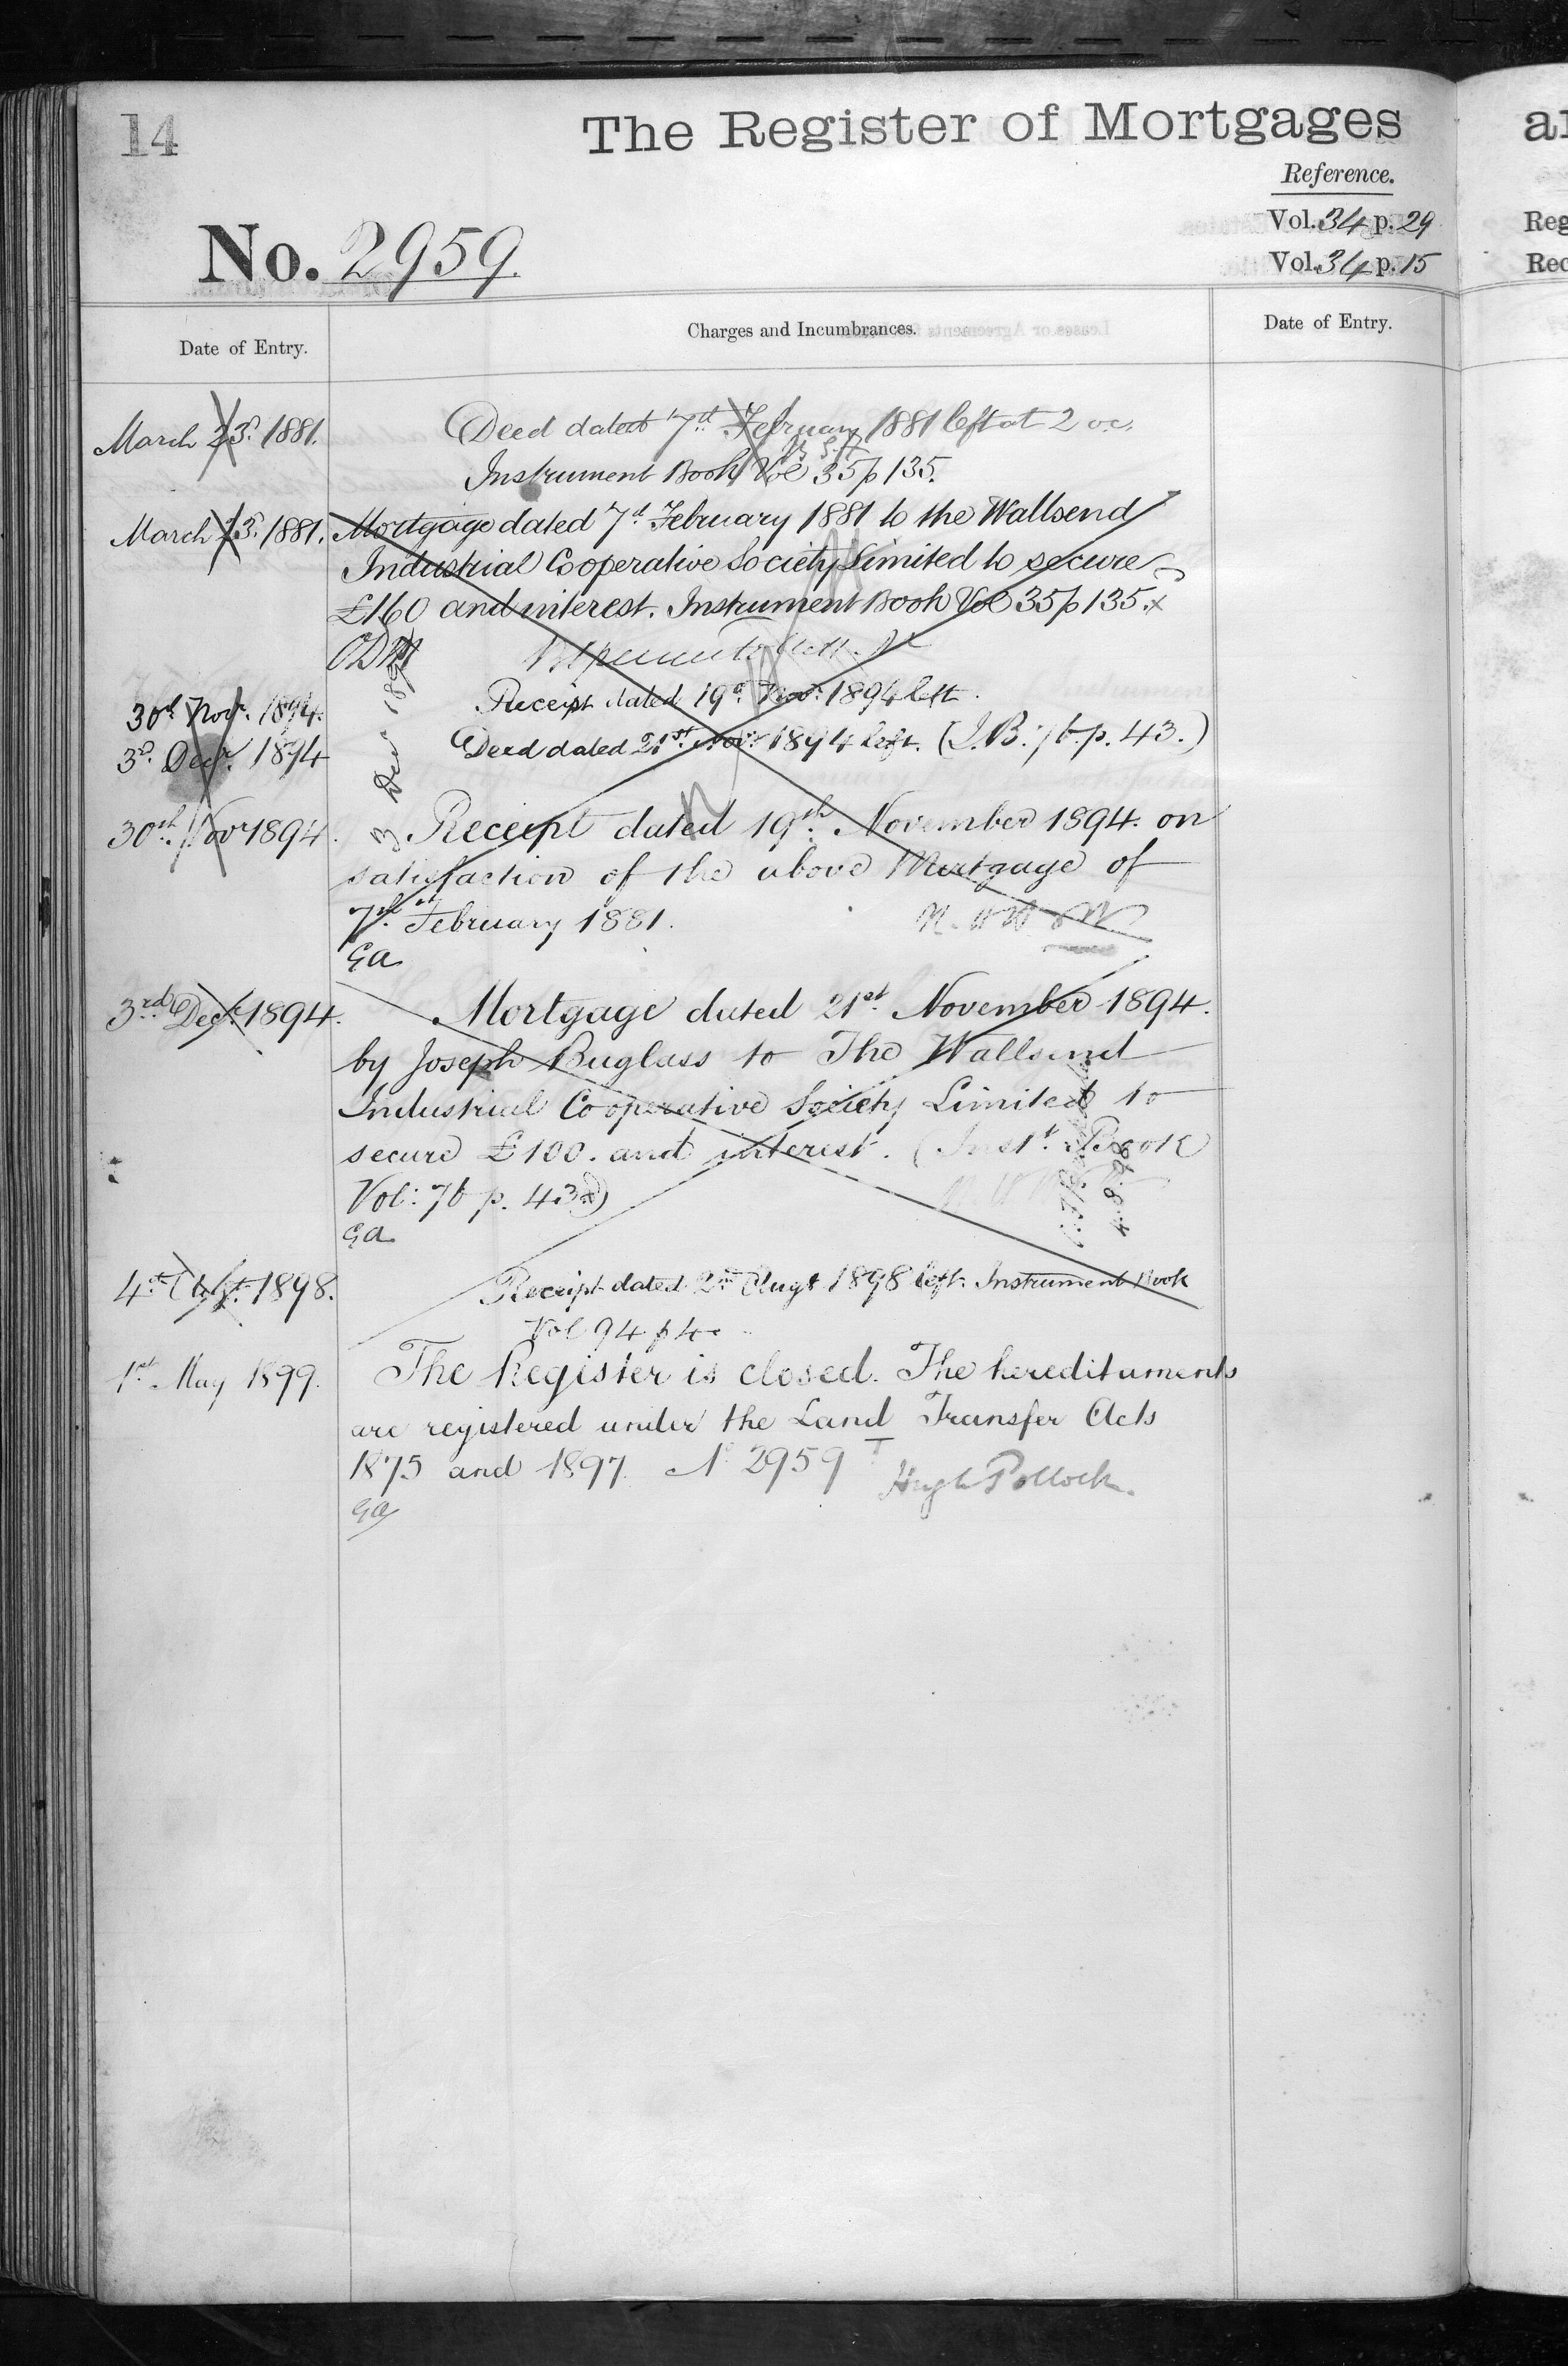 14
The Register of Mortgages
Reference.
Vol. 34 p. 29
No. 2959.
Vol. 34 p. 15
Date of Entry.
Charges and Incumbrances.
Date of Entry.
March 23d. 1881.
Deed dated 7th February 1881 left at 2 oc.
Instrument Book Vol 35 p 135.
March 23d. 1881.
Mortgage dated 7th February 1881 to the Wallsend
Industrial Cooperative Society Limited to secure
£160 and interest. Instrument Book Vol 35 p 135. x
30th Novr. 1894.
Receipt dated 19th Novr. 1894 left.
3d. Decr. 1894
Deed dated 21st. Novr. 1894 left. (I.B. 76. p. 43.)
3 Decr 1894
30th. Novr 1894.
Receipt dated 19th. November 1894. on
satisfaction of the above Mortgage of
7th. February 1881.
GA
3rd. Decr. 1894.
Mortgage dated 21st. November 1894.
by Joseph Buglass to The Wallsend
Industrial Cooperative Society Limited to
secure £100. and interest. (Inst. Book
Vol: 76 p. 43 x)
GA
4. 8. 98
4th 1898.
Receipt dated 2nd Augt 1898 left. Instrument Book
Vol 94 p 4
1st. May 1899.
The Register is closed. The hereditaments
are registered under the Land Transfer Acts
1875 and 1897. No 2959
Hugh Pollock.
GA
ar
Reg
Rec